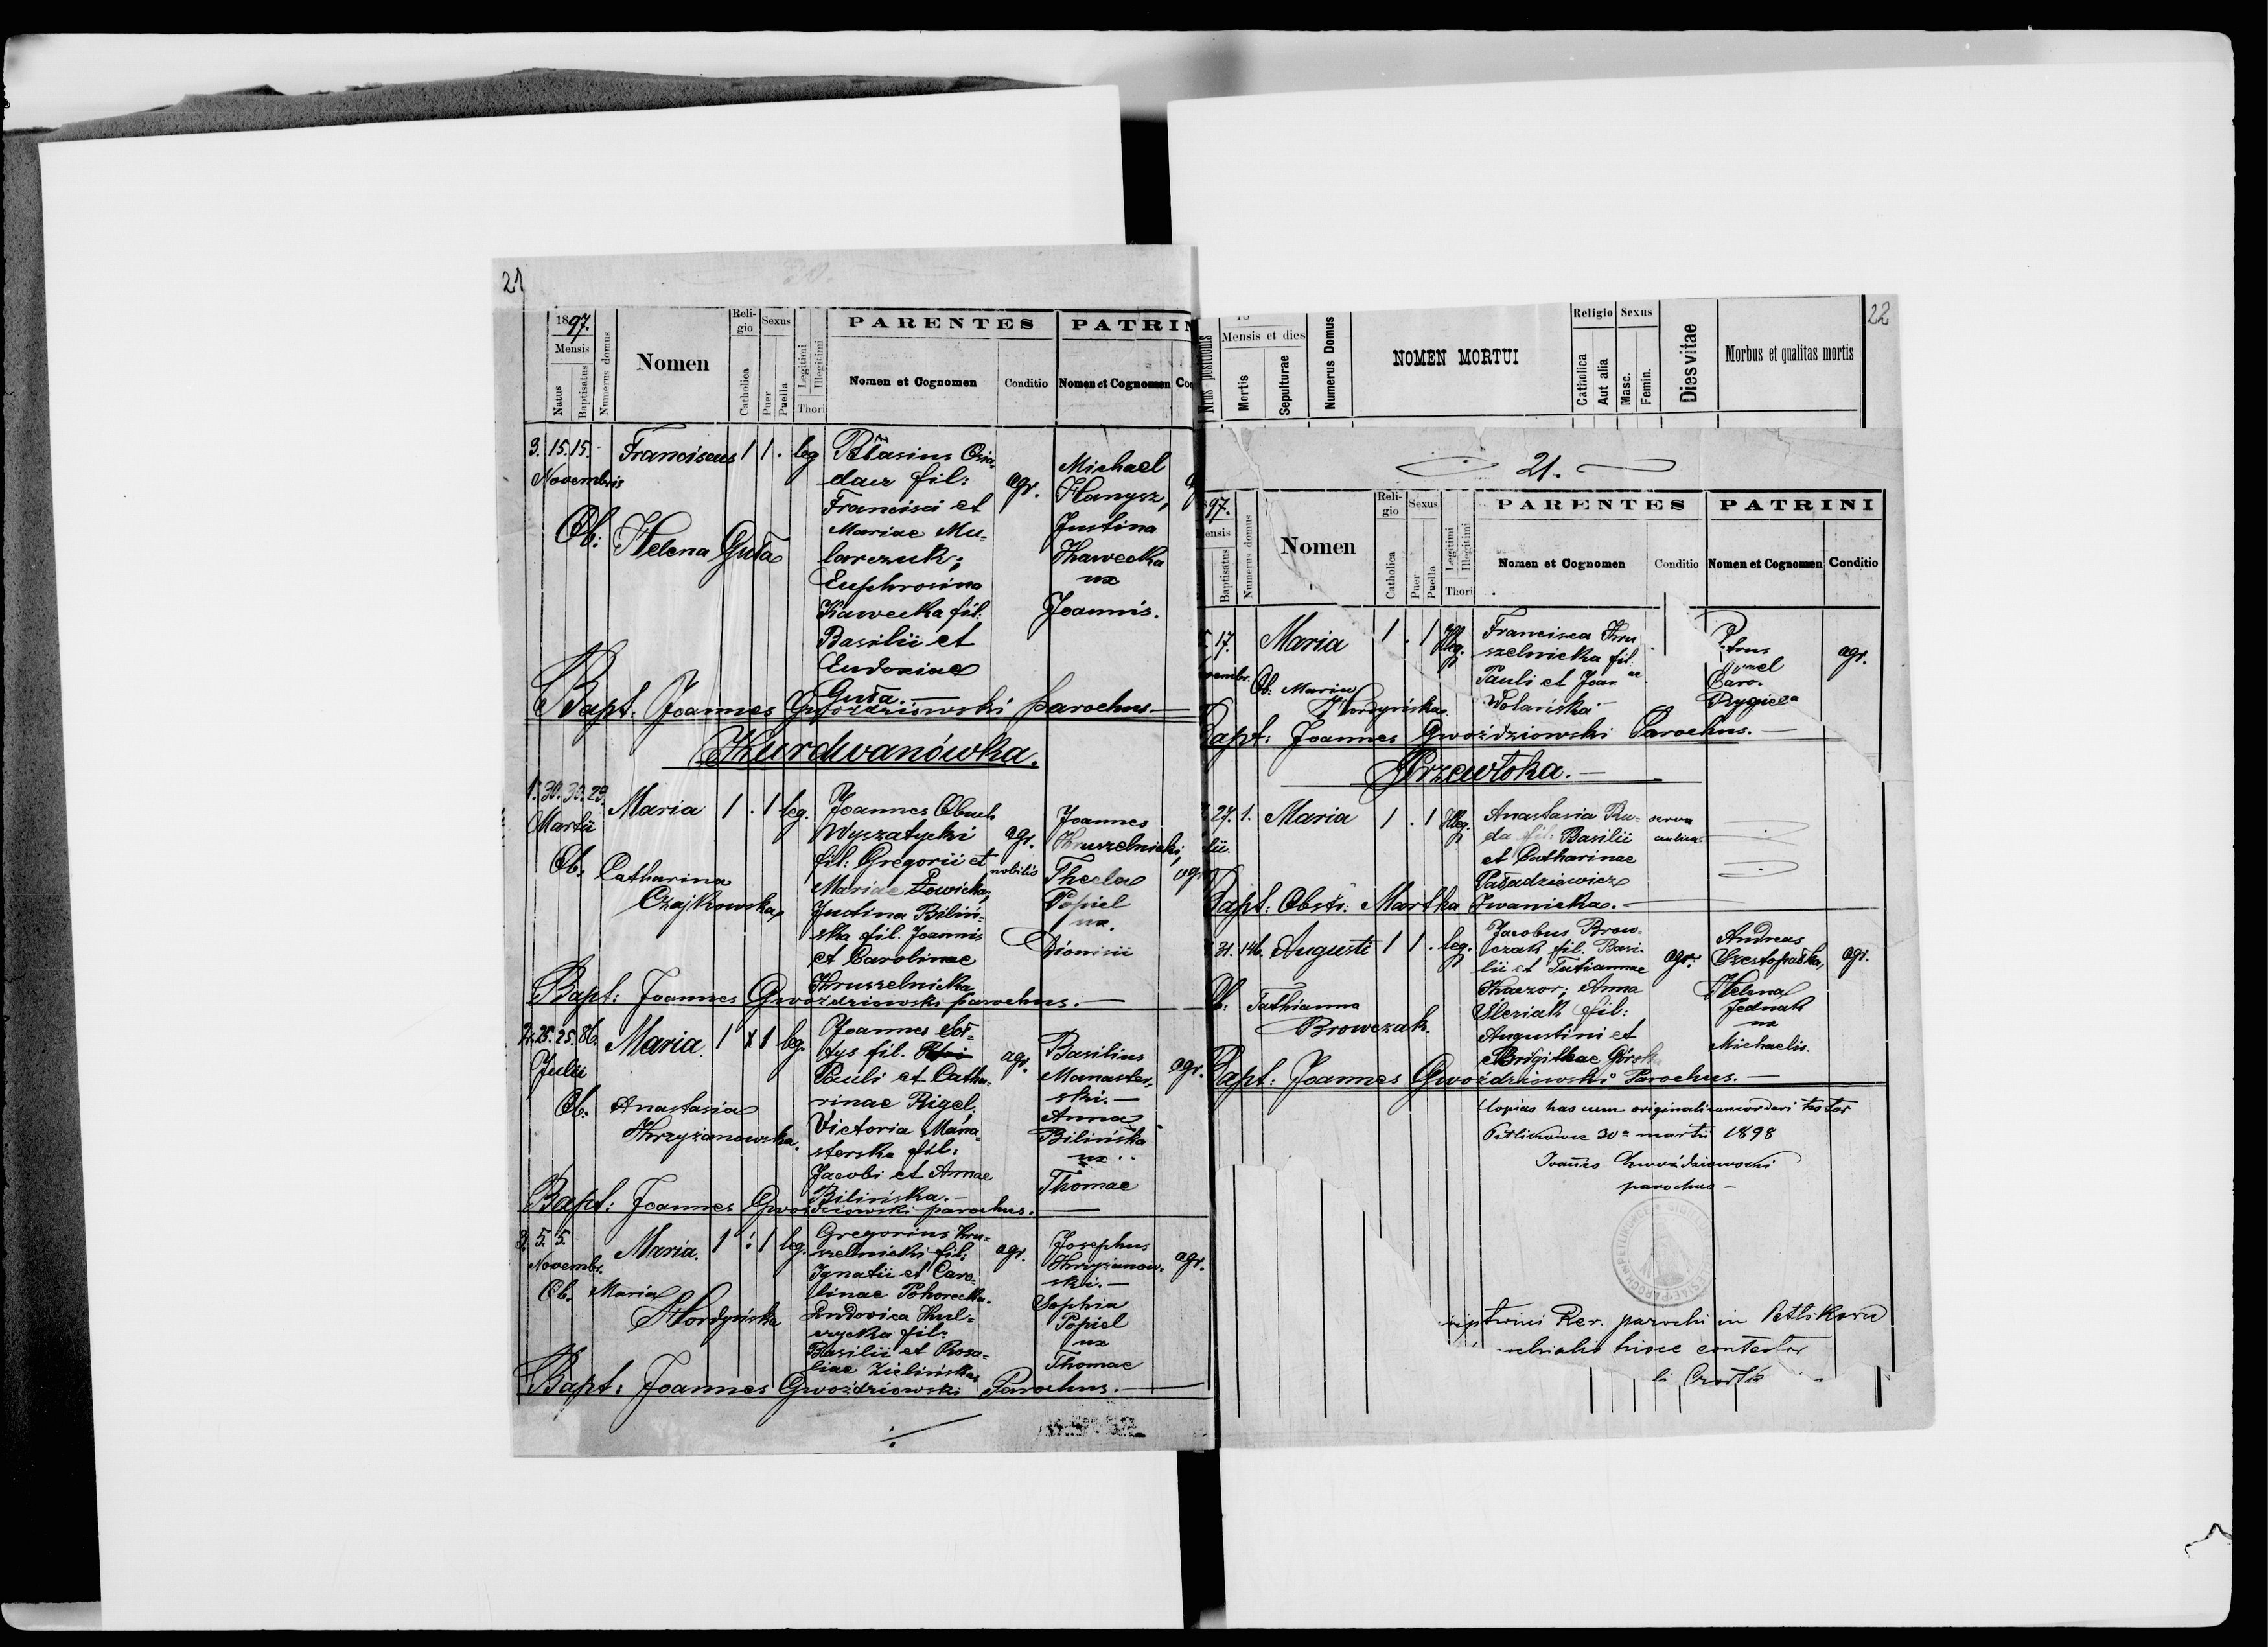 21
20.
1897.
Mensis
Natus
Baptisatus
Numerus domus
Nomen
Religio
Catholica
Sexus
Puer
Puella
Legitimi
Illegitimi
Thori
PARENTES
Nomen et Cognomen
Conditio
PATRIN
Nomen et Cognomen
Co
3. 15. 15. - Franciscus 1 1 . leg
Novembris
Ob: Helena Guła
Blasius Osia-
dacz fil:
Francisci et
Mariae Mu-
larczuk;
Euphrosina
Kawecka fil:
Basilii et
Eudoxiae
Guła.
agr.
Michael
Hanysz,
Justina
Kawecka
ux
Joannis.
Bapt: Joannes Gwoździowski parochus. —
Kurdwanówka.
1. 30. 30. 29. Maria 1 . 1 leg.
Martii
Ob. Catharina
Czajkowska
Joannes Obuch
Wyszatycki
fil: Gregorii et
Mariae Łowicka,
Justina Biliń-
ska fil. Joannis
et Carolinae
Kruszelnicka
agr.
nobilis
Joannes
Kruszelnicki,
Thecla
Popiel
ux.
Dionisii
agr.
Bapt: Joannes Gwoździowski parochus. —
2. 25. 25. 86. Maria. 1 1 leg.
Julii
Ob. Anastasia
Krzyżanowska.
Joannes Soł-
tys fil.
Pauli et Catha-
rinae Rigel.
Victoria Mana-
sterska fil:
Jacobi et Annae
Bilińska. -
agr.
Basilius
Manaster-
ski. —
Anna
Bilińska
ux
Thomae
agr.
Bapt: Joannes Gwoździowski parochus. —
3. 5. 5. Maria. 1 : 1 leg.
Novembr.
Ob. Maria
Hordyńska
Gregorius Kru-
szelnicki fil:
Ignatii et Caro-
linae Pohorecka.
Ludovica Kul-
czycka fil:
Basilii et Rosa-
liae Zielińska
agr.
Josephus
Krzyżanow-
ski. —
Sophia
Popiel
ux
Thomae
agr.
Bapt: Joannes Gwoździowski Parochus. —
22
Nrus positionis
Mensis et dies
Mortis
Sepulturae
Numerus Domus
NOMEN MORTUI
Religio
Catholica
Aut alia
Sexus
Masc.
Femin.
Dies vitae
Morbus et qualitas mortis
21.
97.
ensis
Baptisatus
Numerus domus
Nomen
Religio
Catholica
Sexus
Puer
Puella
Legitimi
Illegitimi
Thori
PARENTES
Nomen et Cognomen
Conditio
PATRINI
Nomen et Cognomen
Conditio
17. Maria 1 . 1 Illeg.
vembr. Ob. Maria
Hordyńska
Francisca Kru
szelnicka fil:
Pauli et Joan ae
Wolańska —
Petrus
Caro-
Rygiel a
agr.
Bapt: Joannes Gwoździowski Parochus. —
Przewłoka. —
27. 1. Maria 1 . 1 Illeg.
lii.
Anastasia Ru-
da fil: Basilii
et Catharinae
Paładziewicz
serva
Bapt: Obstr. Martha Iwanicka. —
31. 146. Augusti 1 1 . leg.
Ob: Tathianna
Browczak.
Jacobus Brow-
czak fil. Basi-
lii et Tatiannae
Kaczor; Anna
Uleziak fil:
Augustini et
Brigithae Górsk
agr.
Andreas
Szestopałka,
Helena
Jednak
ux
Michaelis.
agr.
Bapt: Joannes Gwoździowski Parochus. —
Copias has cum originali concordari testor
Petlikowce 30a martii 1898
Joannes Gwoździowski
parochus —
Rev. parochi in Petlikowce
hisce contestor